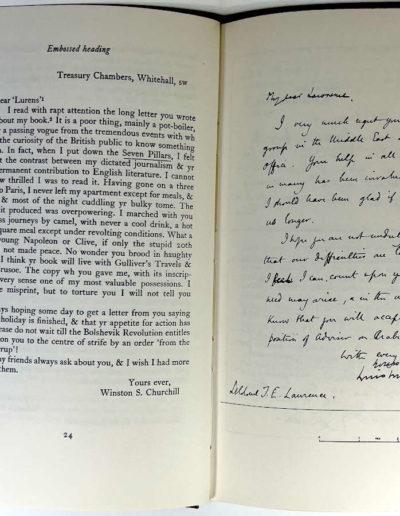 Embossed heading
Treasury Chambers, Whitehall, SW
ear 'Lurens'¹
I read with rapt attention the long letter you wrote
bout my book.² It is a poor thing, mainly a pot-boiler,
a passing vogue from the tremendous events with wh
the curiosity of the British public to know something
In fact, when I put down the Seven Pillars, I felt
t the contrast between my dictated journalism & yr
ermanent contribution to English literature. I cannot
w thrilled I was to read it. Having gone on a three
o Paris, I never left my apartment except for meals, &
& most of the night cuddling yr bulky tome. The
it produced was overpowering. I marched with you
ss journeys by camel, with never a cool drink, a hot
quare meal except under revolting conditions. What a
young Napoleon or Clive, if only the stupid 20th
not made peace. No wonder you brood in haughty
I think yr book will live with Gulliver's Travels &
rusoe. The copy wh you gave me, with its inscrip-
very sense one of my most valuable possessions. I
e misprint, but to torture you I will not tell you
ays hoping some day to get a letter from you saying
holiday is finished, & that yr appetite for action has
ease do not wait till the Bolshevik Revolution entitles
on you to the centre of strife by an order 'from the
rup'!
y friends always ask about you, & I wish I had more
them.
Yours ever,
Winston S. Churchill
24
My dear Lawrence,
I very much regret you
group in the Middle East
office. Your help in all
in many has been invalu
I should have been glad if
us longer.
I hope you are not
that our difficulties are
I can count upon yo
need may arise,
know that you will accep
position of Advisor on Arab
With every
T.E. Lawrence.